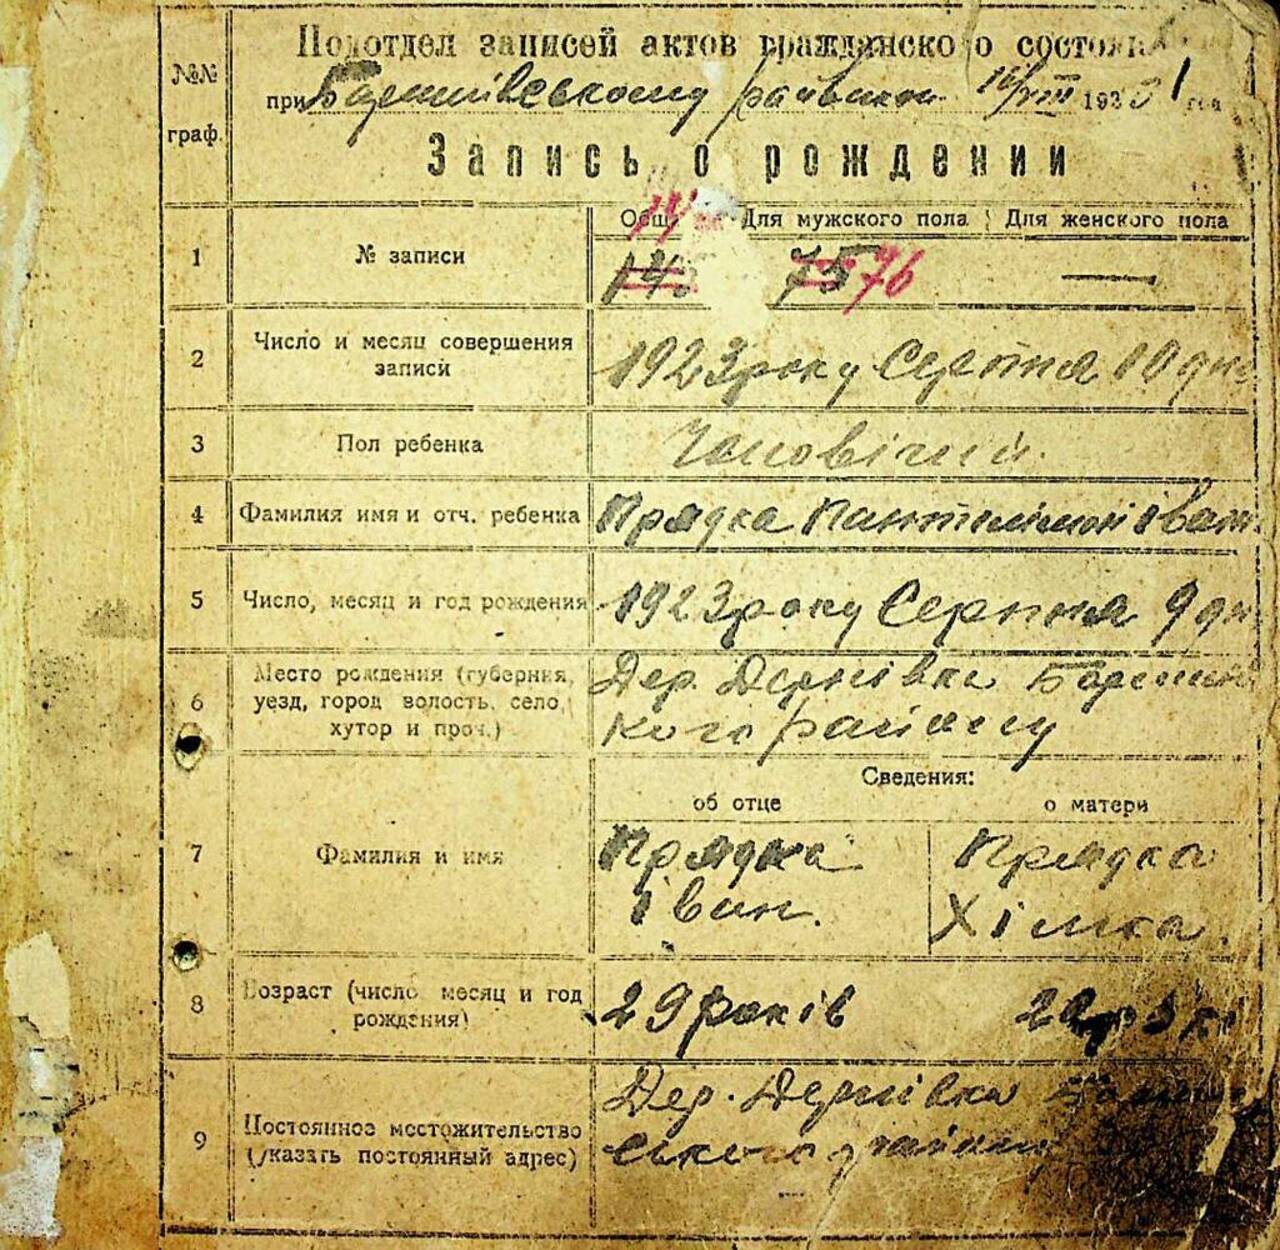 №№
граф.
Подотдел записей актов гражданского состоян
при Баришівському райвикон 16/VIII 1923 1 года
Запись о рождении
Общ Для мужского пола Для женского пола
1 № записи 14 75 76 —
2 Число и месяц совершения
записи
1923 року Серпня 10 дня
3 Пол ребенка Чоловічий.
4 Фамилия имя и отч. ребенка Прядка Пантелімон Іван
5 Число, месяц и год рождения 1923 року Серпня 9 дн
6 Место рождения (губерния,
уезд, город волость, село,
хутор и проч.)
Дер. Дернівка Баришів
кого району
Сведения:
об отце о матери
7 Фамилия и имя
Прядка Прядка
Іван. Хімка.
8 Возраст (число месяц и год
рождения)
29 років
9 Постоянное местожительство
(указать постоянный адрес)
Дер. Дернівка
ського району